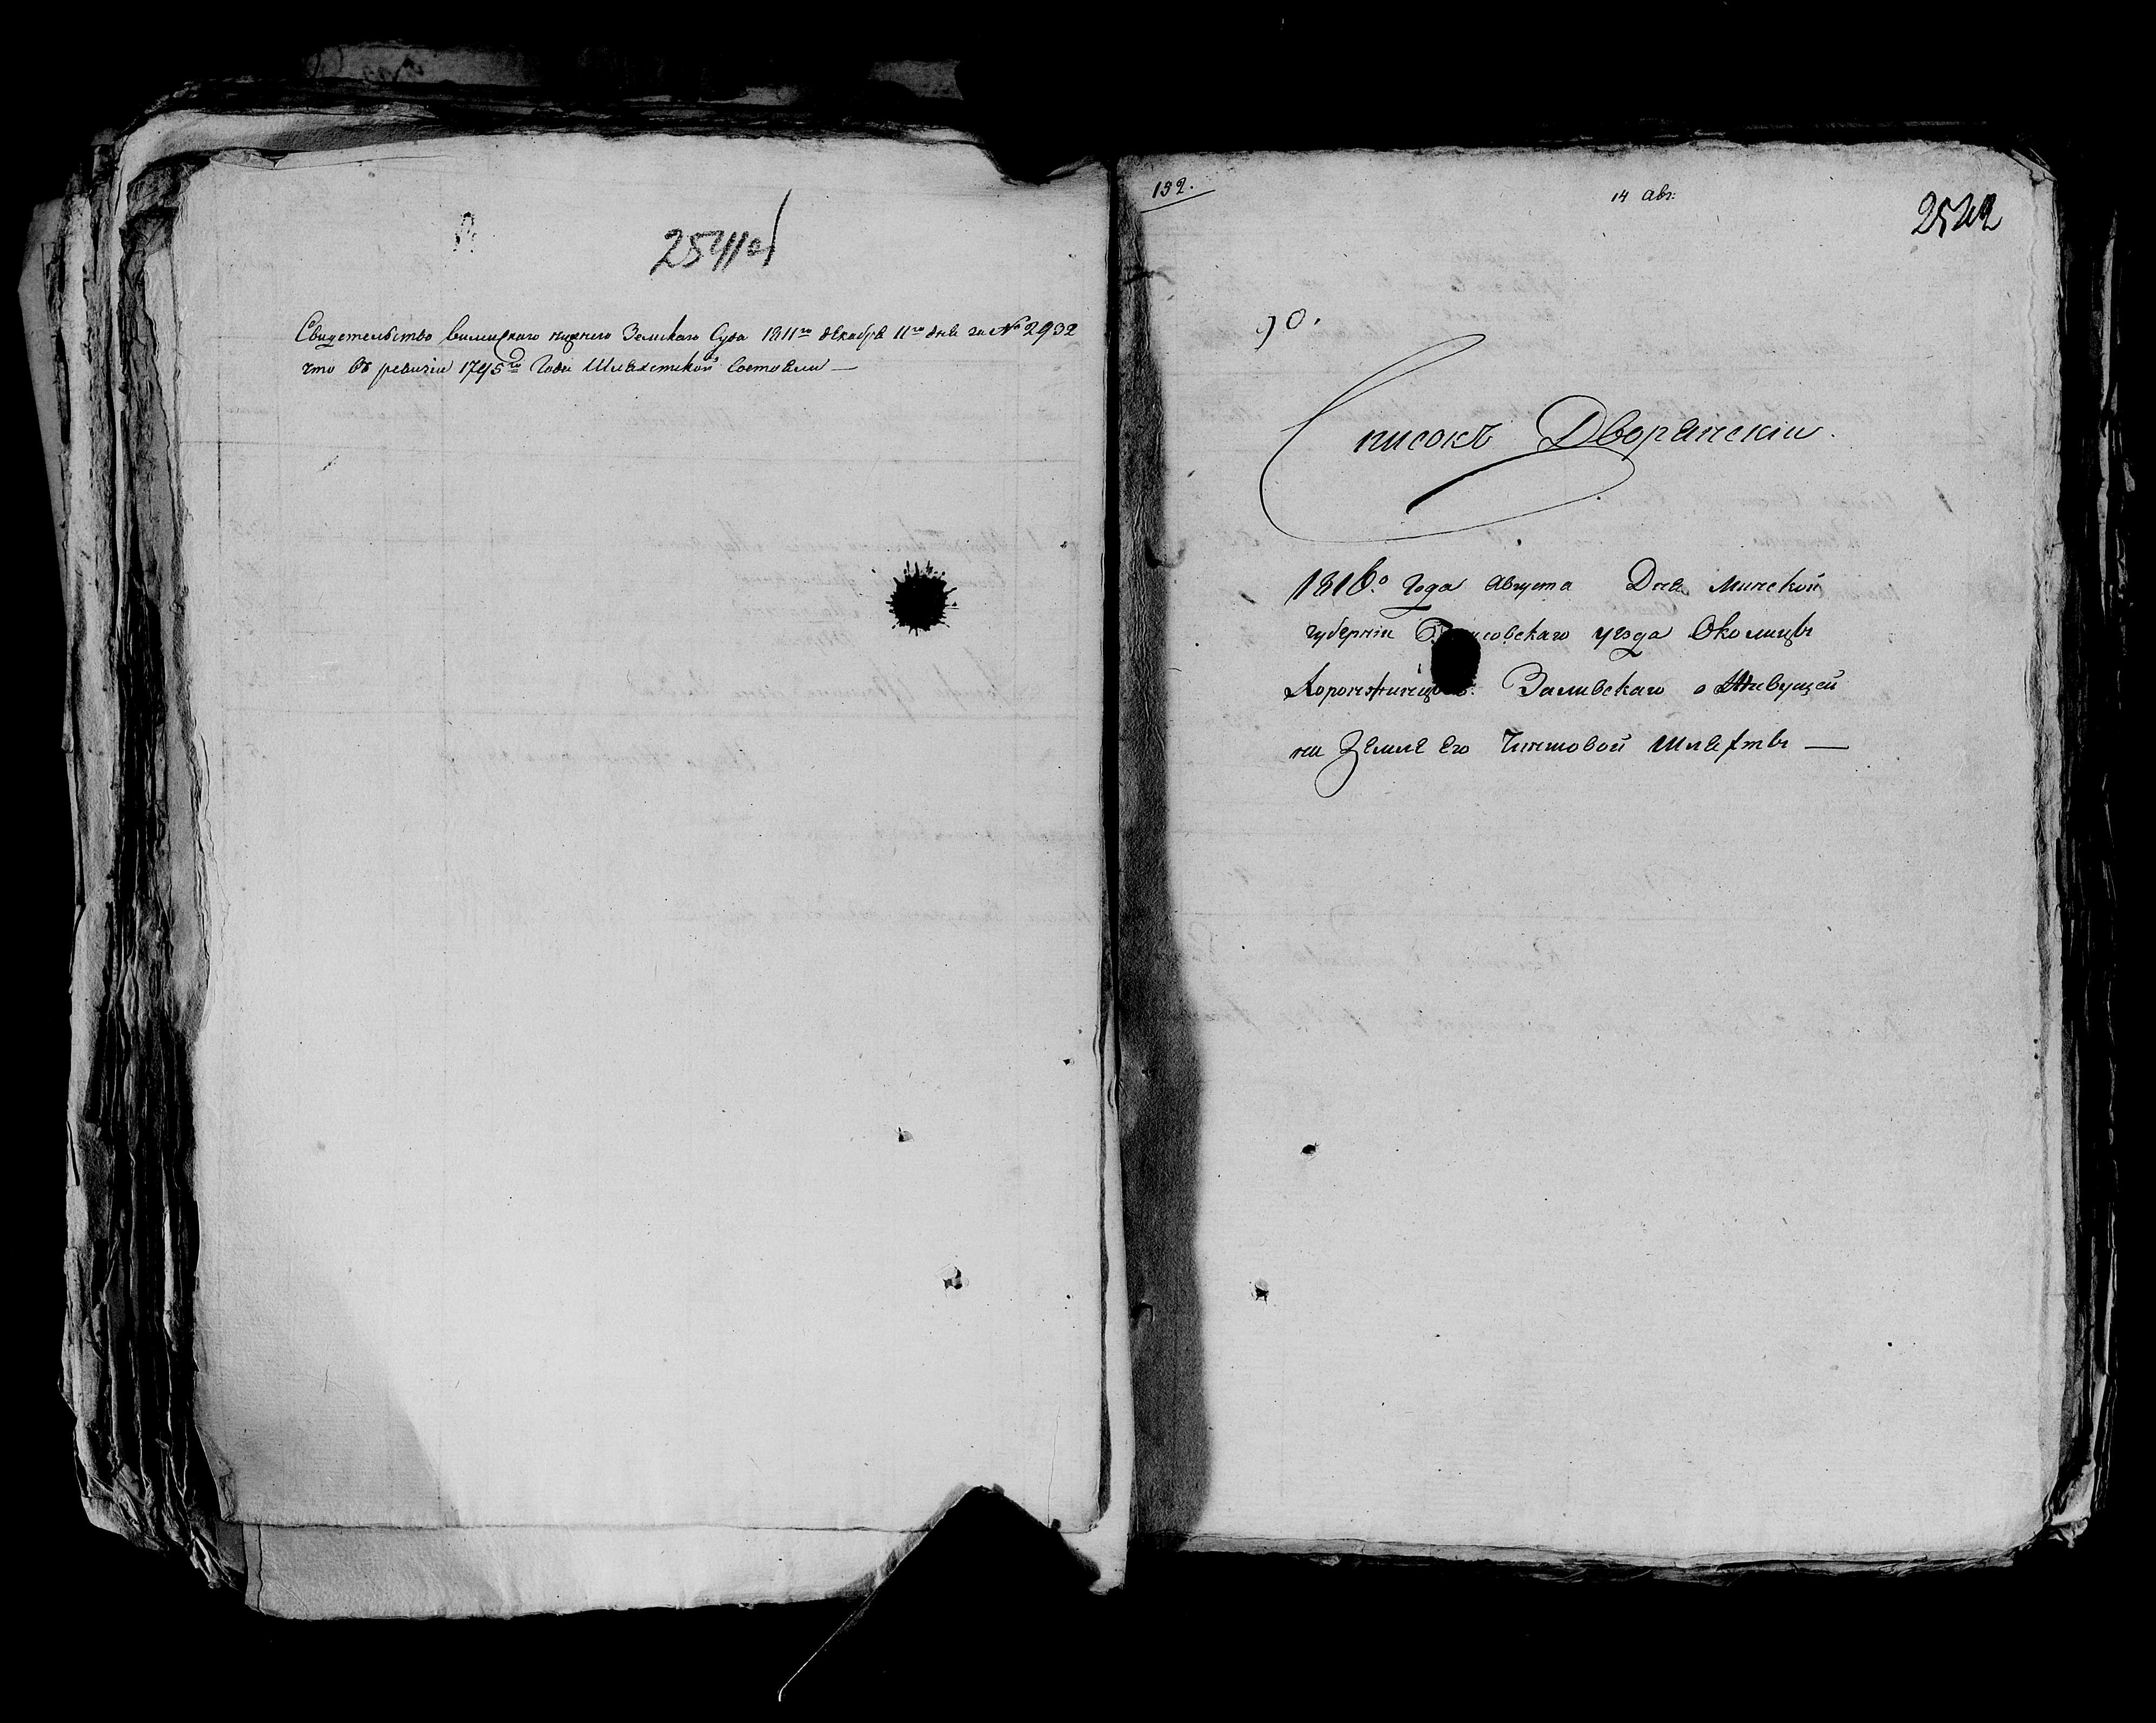 2541об
Свидетельство вилейского нижнего Земскаго Суда 1811го декабря 11го дня за № 2932
что въ ревизіи 1795го Года Шляхетской Состояли —
132.
14 авг:
2542
90.
Списокъ Дворянскіи.
1816о. Года Августа Дня Минской
губерніи Борисовскаго уезда Околицы
Заливскаго о Живущей
на Земле Его Чиншовой Шляхты —